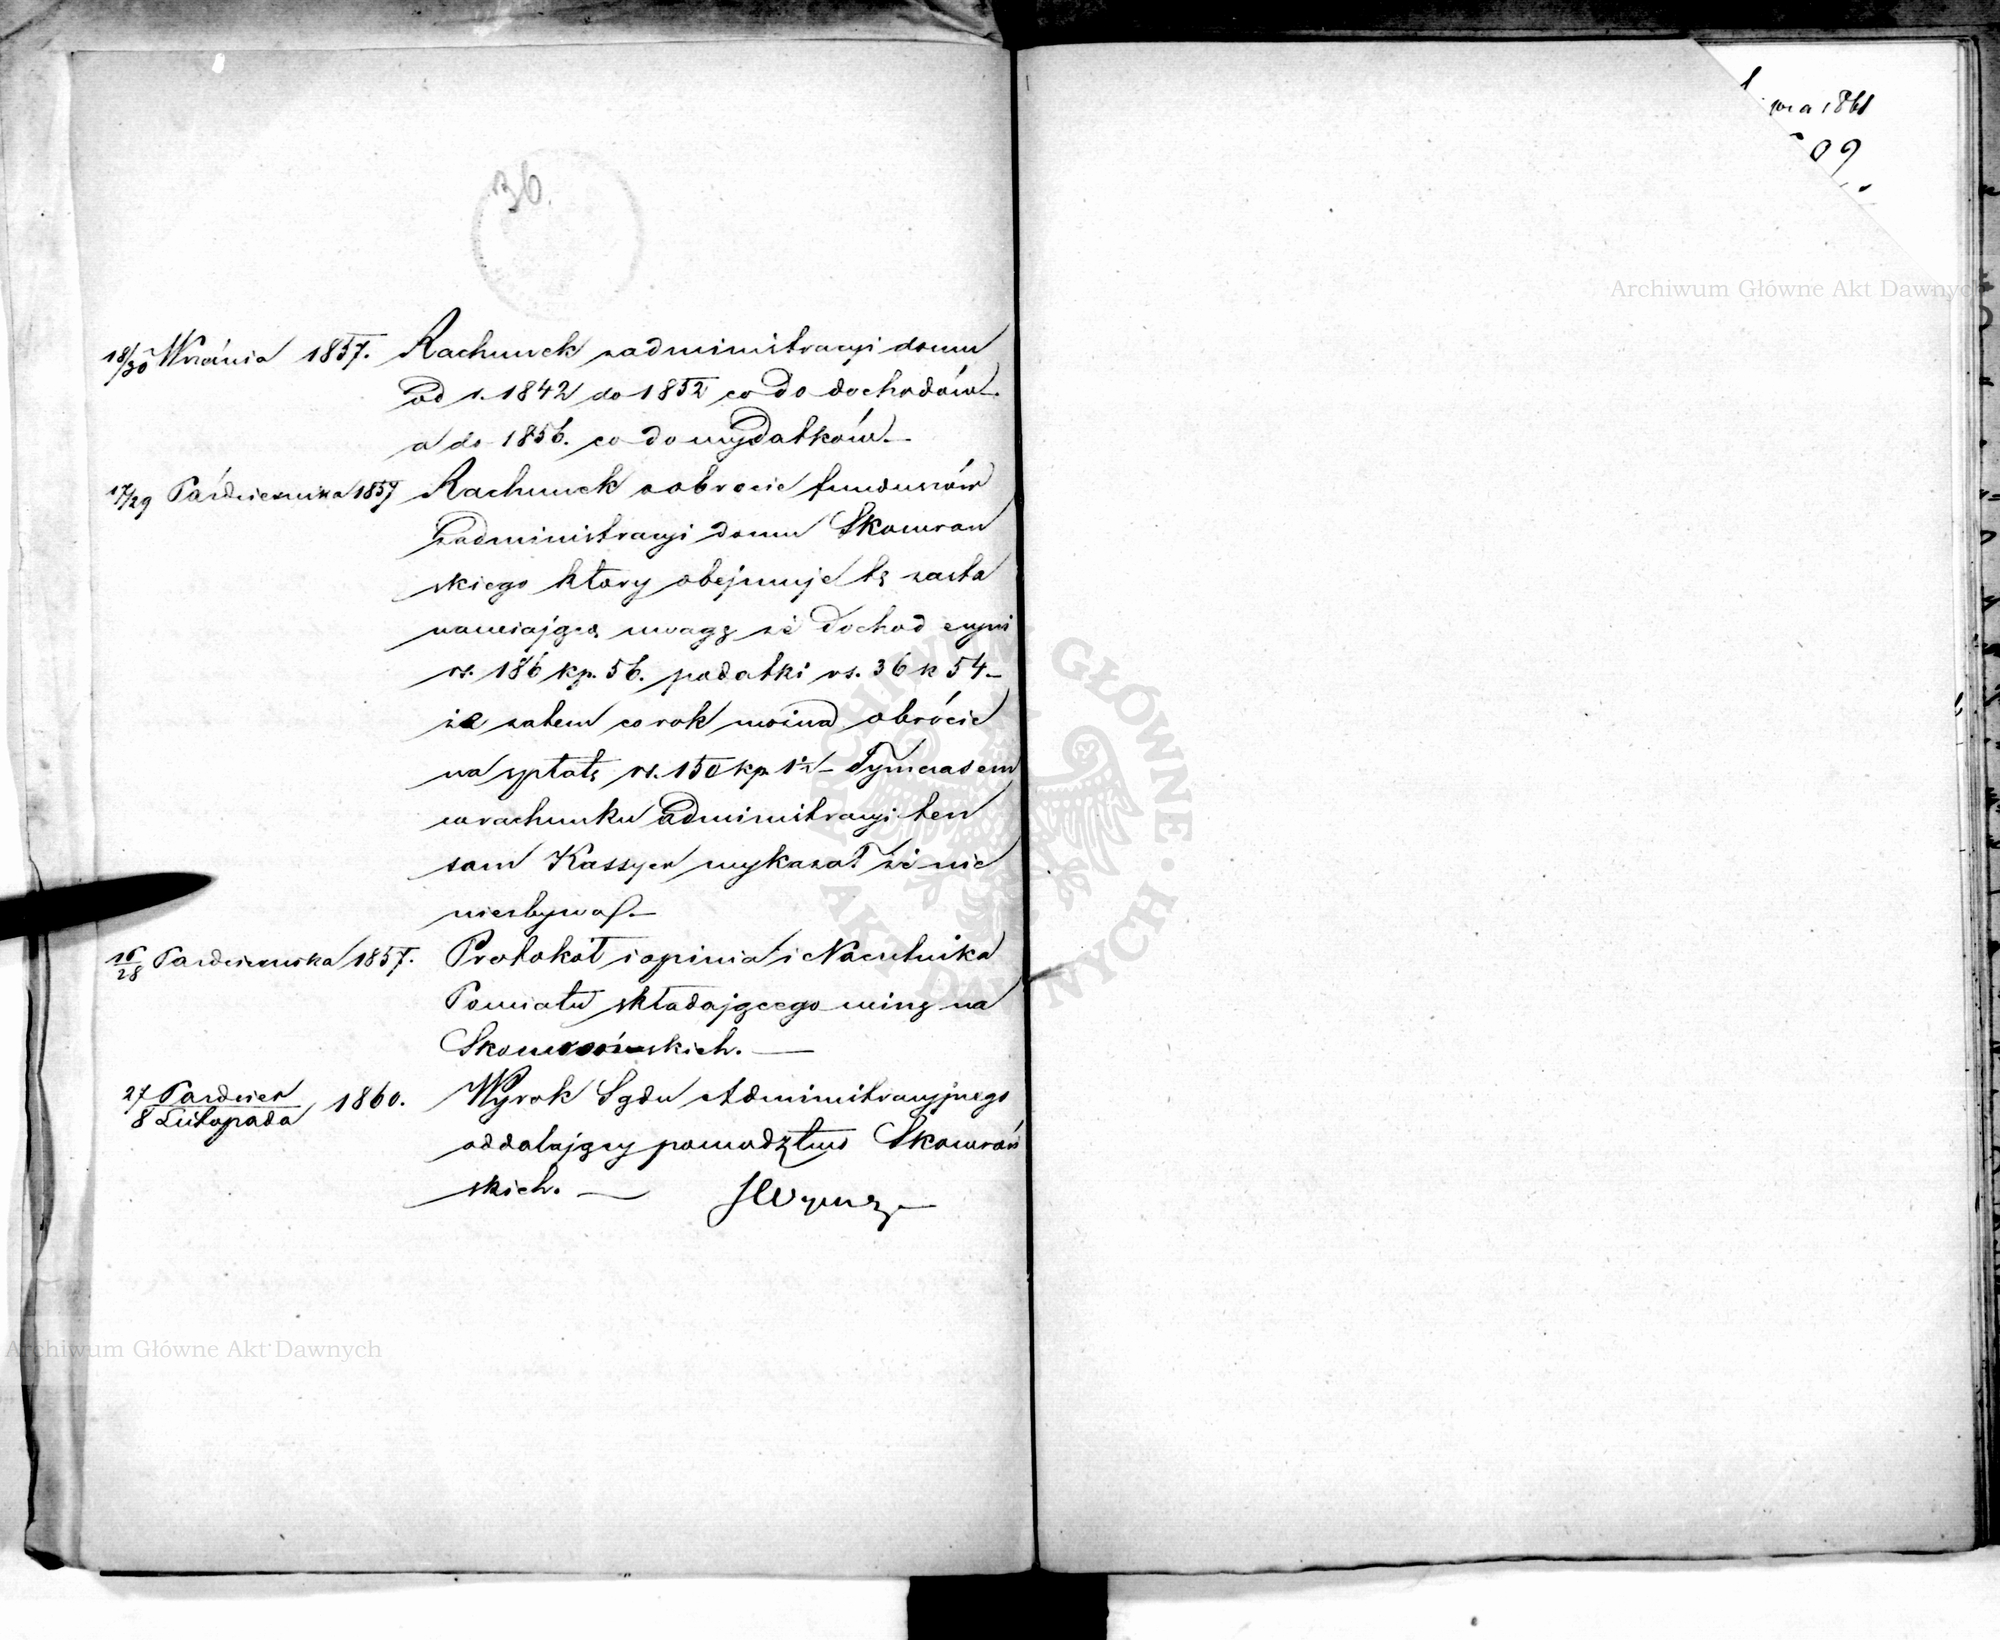 36.
18/30 Września 1857. Rachunek z administracyi domu
od r. 1842 do 1852 co do dochodów
a do 1856. co do wydatków.—
17/29 Październzka 1857 Rachunek o obrocie funduszów
z administracyi domu Skowron
skiego który obejmuje tę zasta
nawiającą uwagę że dochod czyni
rs. 186 kp. 56. podatki rs. 36 k 54—
że zatem co rok można obrócić
na spłatę rs. 150 kp 1½— Tymczasem
w rachunku administracyi ten
sam Kassyer wykazał że nic
niezbywa.—
16/28 Październzka 1857. Protokół i opinia Naczelnika
Powiatu składającego winę na
Skowrońskich.—
27 Paździer / 8 Listopada 1860. Wyrok Sądu Administracyjnego
oddalający powodztwo Skowroń
skich.—
1861
09
Archiwum Główne Akt Dawnych
ARCHIWUM GŁÓWNE AKT DAWNYCH
Archiwum Główne Akt Dawnych